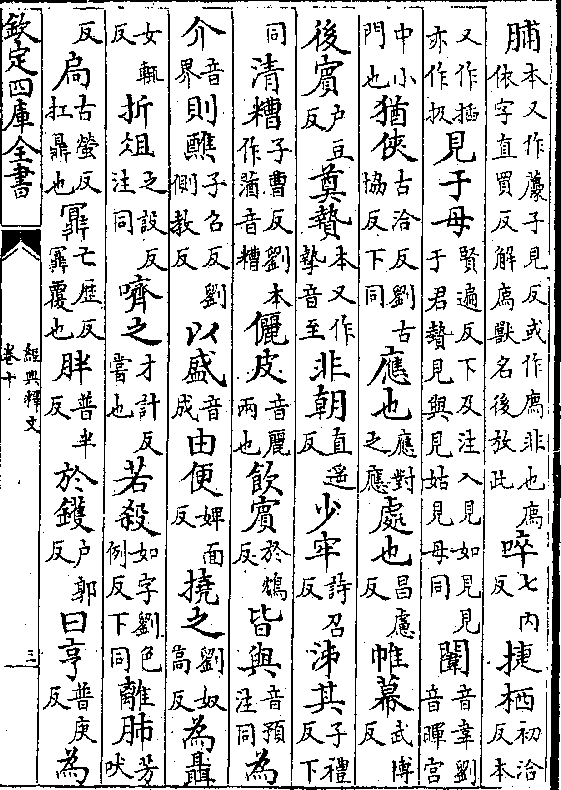 脯本又作䕩子見反或作廌非也廌依字直買反解廌獸名後放此啐七內反捷栖初洽反本
又作插亦作扱見于母賢遍反下及注入見如見見于君贄見與見姑見母同闈音韋劉音暉宮
中小門也猶俠古洽反劉古協反下同應也應對之應處也昌慮反帷幕武博反
後賔户豆反奠贄本又作摯音至非朝直遥反少牢詩召反泲其子禮反下
同清糟子曹反劉本作蕕音糟儷皮音麗兩也飲賔於鴆反皆與音預注同為
介音界則醮子召反劉側教反以盛音成由便婢面反撓之劉奴高反為聶
女輒反折俎之設反注同嚌之才計反嘗也若殺如字劉色例反下同離肺芳吠
反扃古螢反扛鼎也鼏亡歴反鼏覆也胖普半反於鑊户郭反曰亨普庚反為
欽定四庫全書
經典釋文
卷十
三